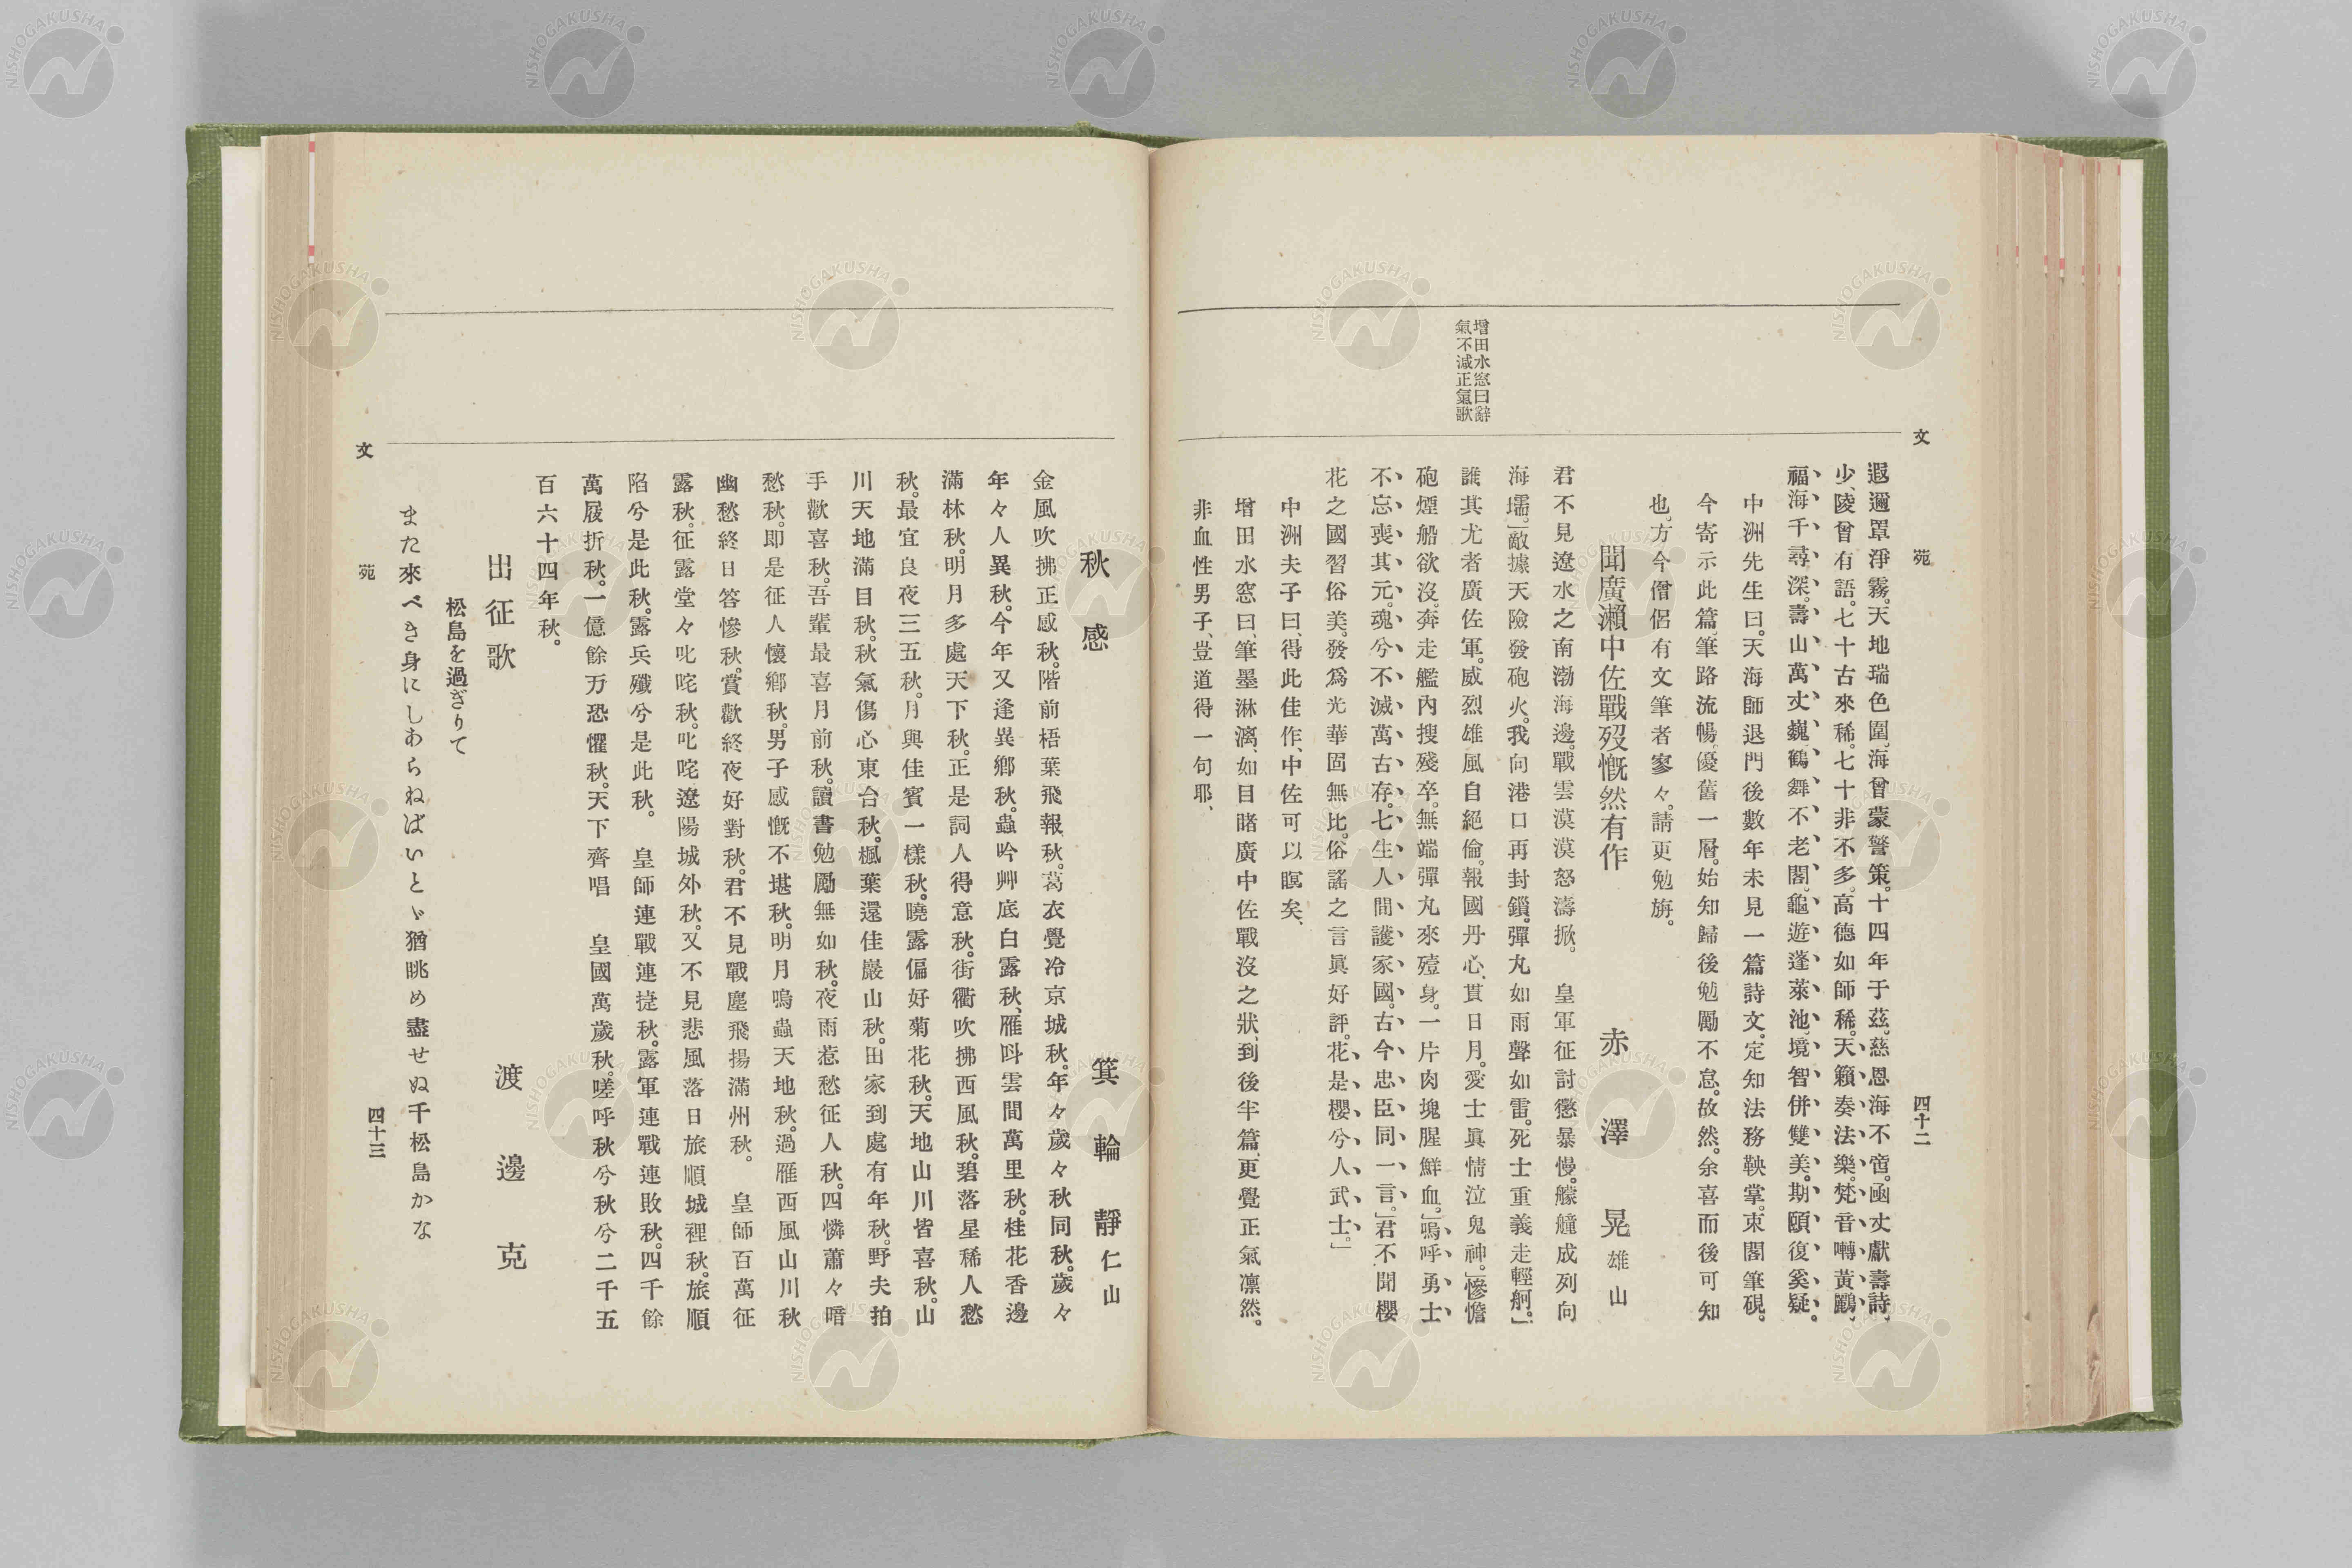 文苑
四十二
遐邇罩淨霧。天地瑞色圍、海曾蒙警策。十四年于茲、慈恩海不啻。函丈獻壽詩、
少陵曾有語。七十古來稀。七十非不多、高德如師稀。天籟奏法樂。梵音囀黃鸝、
福海千尋深。壽山萬丈巍、鶴舞不老閣。龜遊蓬萊池、境智併雙美。期頤復奚疑。
中洲先生曰。天海師退門後數年未見一篇詩文。定知法務鞅掌。束閣筆硯。
今寄示此篇、筆路流暢、優舊一層。始知歸後勉勵不怠。故然。余喜而後可知
也。方今僧侶有文筆者寥々。請更勉旃。
聞廣瀨中佐戰歿慨然有作
赤澤晃雄山
君不見遼水之南渤海邊。戰雲漠漠怒濤掀。 皇軍征討懲暴慢。艨艟成列向
海壖。」敵據天險發砲火。我向港口再封鎖。彈丸如雨聲如雷。死士重義走輕舸。」
誰其尤者廣佐軍。威烈雄風自絕倫。報國丹心、貫日月。愛士眞情泣鬼神。」慘憺
砲煙船欲沒。奔走艦內搜殘卒。無端彈丸來殪身。一片肉塊腥鮮血。」嗚呼勇士
不忘喪其元。魂兮不滅萬古存。七生人間護家國。古今忠臣同一言。」君不聞櫻
花之國習俗美。發爲光華固無比。俗謠之言眞好評。花是櫻兮人武士。」
增田水窓曰辭
氣不減正氣歌
中洲夫子曰、得此佳作、中佐可以瞑矣、
增田水窓曰、筆墨淋漓、如目睹廣中佐戰沒之狀、到後半篇、更覺正氣凛然。
非血性男子、豈道得一句耶、
秋感
箕輪靜仁山
金風吹拂正感秋。階前梧葉飛報秋。葛衣覺冷京城秋。年々歲々秋同秋。歲々
年々人異秋。今年又逢異鄉秋。蟲吟艸底白露秋、雁叫雲間萬里秋。桂花香邊
滿林秋。明月多處天下秋。正是詞人得意秋。街衢吹拂西風秋。碧落星稀人愁
秋。最宜良夜三五秋。月與佳賓一樣秋。曉露偏好菊花秋。天地山川皆喜秋。山
川天地滿目秋。秋氣傷心東台秋。楓葉還佳巖山秋。田家到處有年秋。野夫拍
手歡喜秋。吾輩最喜月前秋。讀書勉勵無如秋。夜雨惹愁征人秋。四憐蕭々暗
愁秋。即是征人懷鄉秋。男子感慨不堪秋。明月鳴蟲天地秋。過雁西風山川秋
幽愁終日答慘秋。賞歡終夜好對秋。君不見戰塵飛揚滿州秋。 皇師百萬征
露秋。征露堂々叱咤秋。叱咤遼陽城外秋。又不見悲風落日旅順城裡秋。旅順
陷兮是此秋。露兵殲兮是此秋。 皇師連戰連捷秋。露軍連戰連敗秋。四千餘
萬履折秋。一億餘万恐懼秋。天下齊唱 皇國萬歲秋。嗟呼秋兮秋兮二千五
百六十四年秋。
出征歌
渡邊克
松島を過ぎりて
また來べき身にしあらねばいとゞ猶眺め盡せぬ千松島かな
文苑
四十三